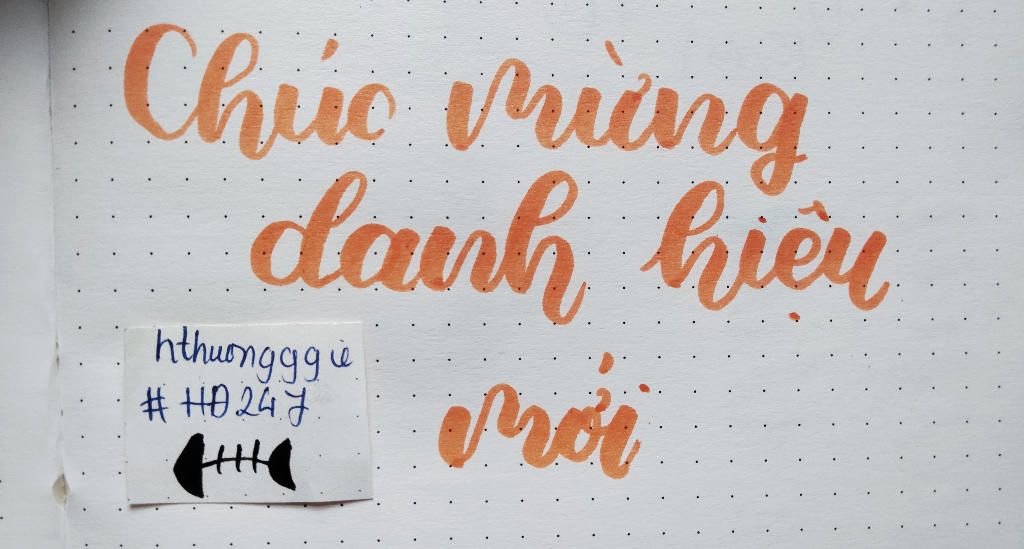 Chúc mừng
danh hiệu
mới
hthuongggie
#HĐ247